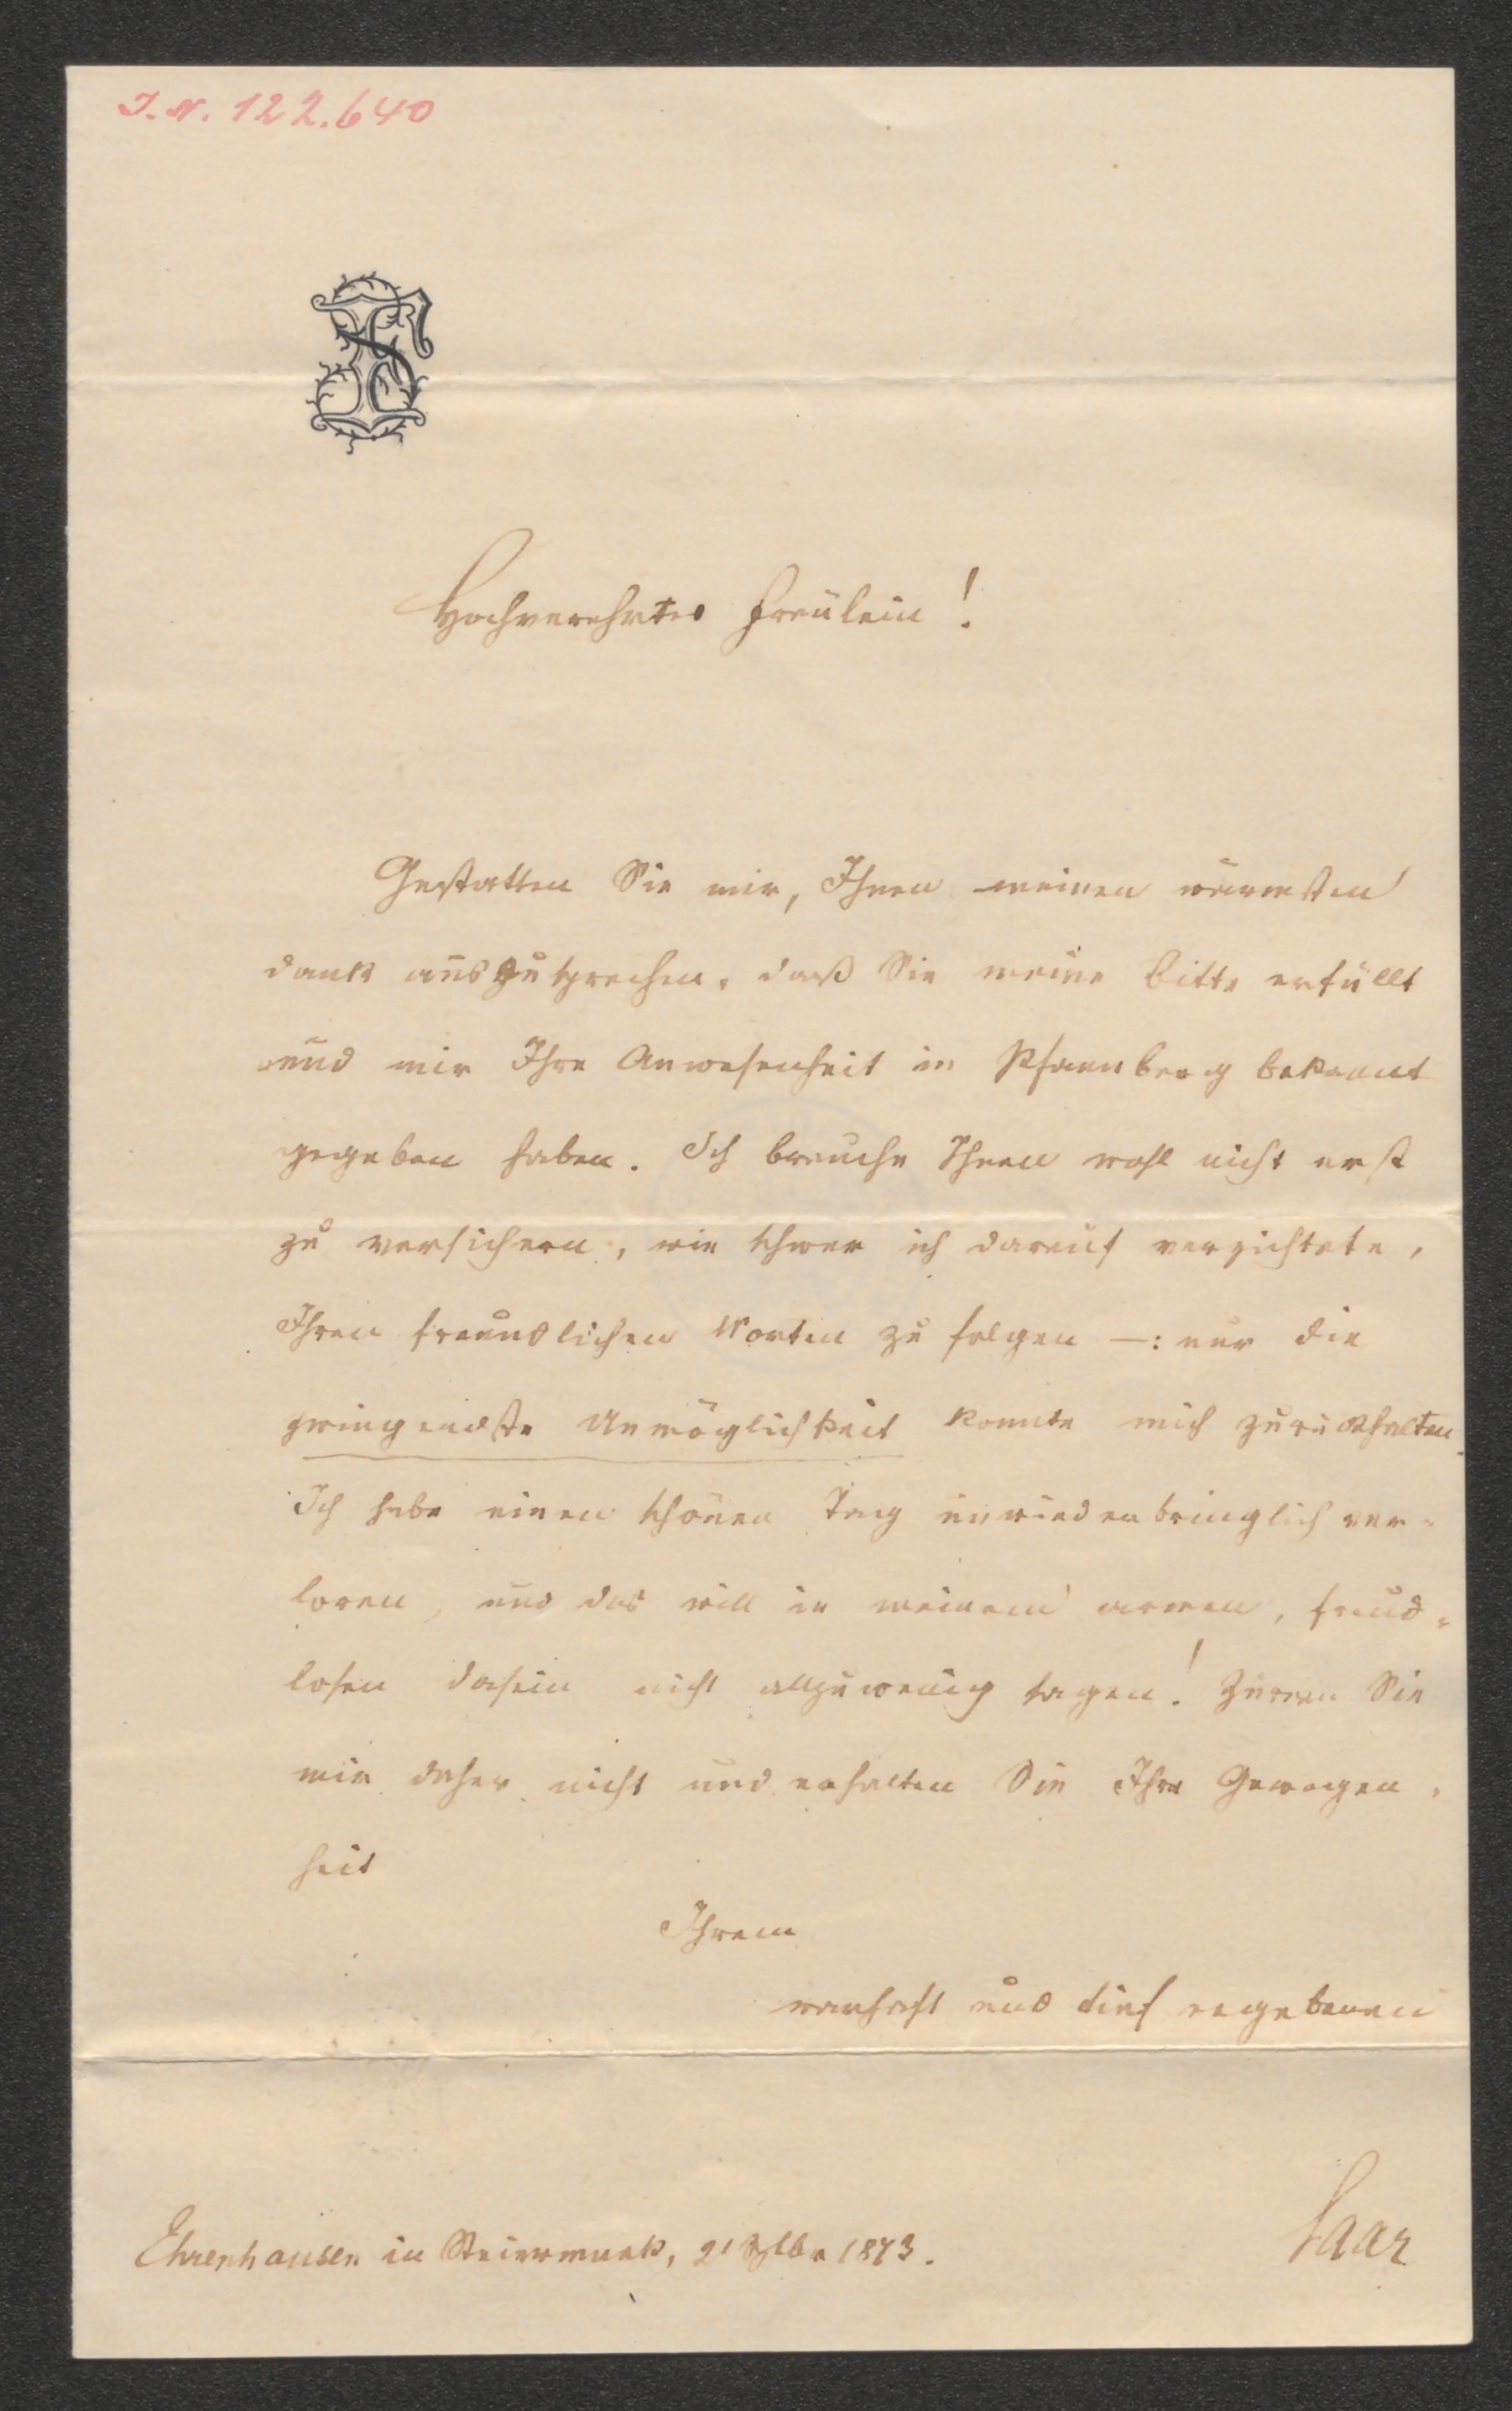 I. N. 122.640
FS
Hochverehrtes Fräulein!
Gestatten Sie mir, Ihnen meinen wärmsten
Dank auszusprechen, daß Sie meine Bitte erfüllt
und mir Ihre Anwesenheit in Pfannberg bekannt
gegeben haben. Ich brauche Ihnen wohl nicht erst
zu versichern, wie schwer ich darauf verzichtete,
Ihren freundlichen Worten zu folgen —: nur die
zwingendste Unmöglichkeit konnte mich zurückhalten.
Ich habe einen schönen Tag unwiederbringlich ver-
loren, und das will in meinem armen, freud-
losen Dasein nicht allzuwenig sagen! Zürnen Sie
mir daher nicht und erhalten Sie Ihre Gewogen-
heit
Ihrem
wahrhaft und tief ergebenen
Saar
Ehrenhausen in Steiermark, 1873.